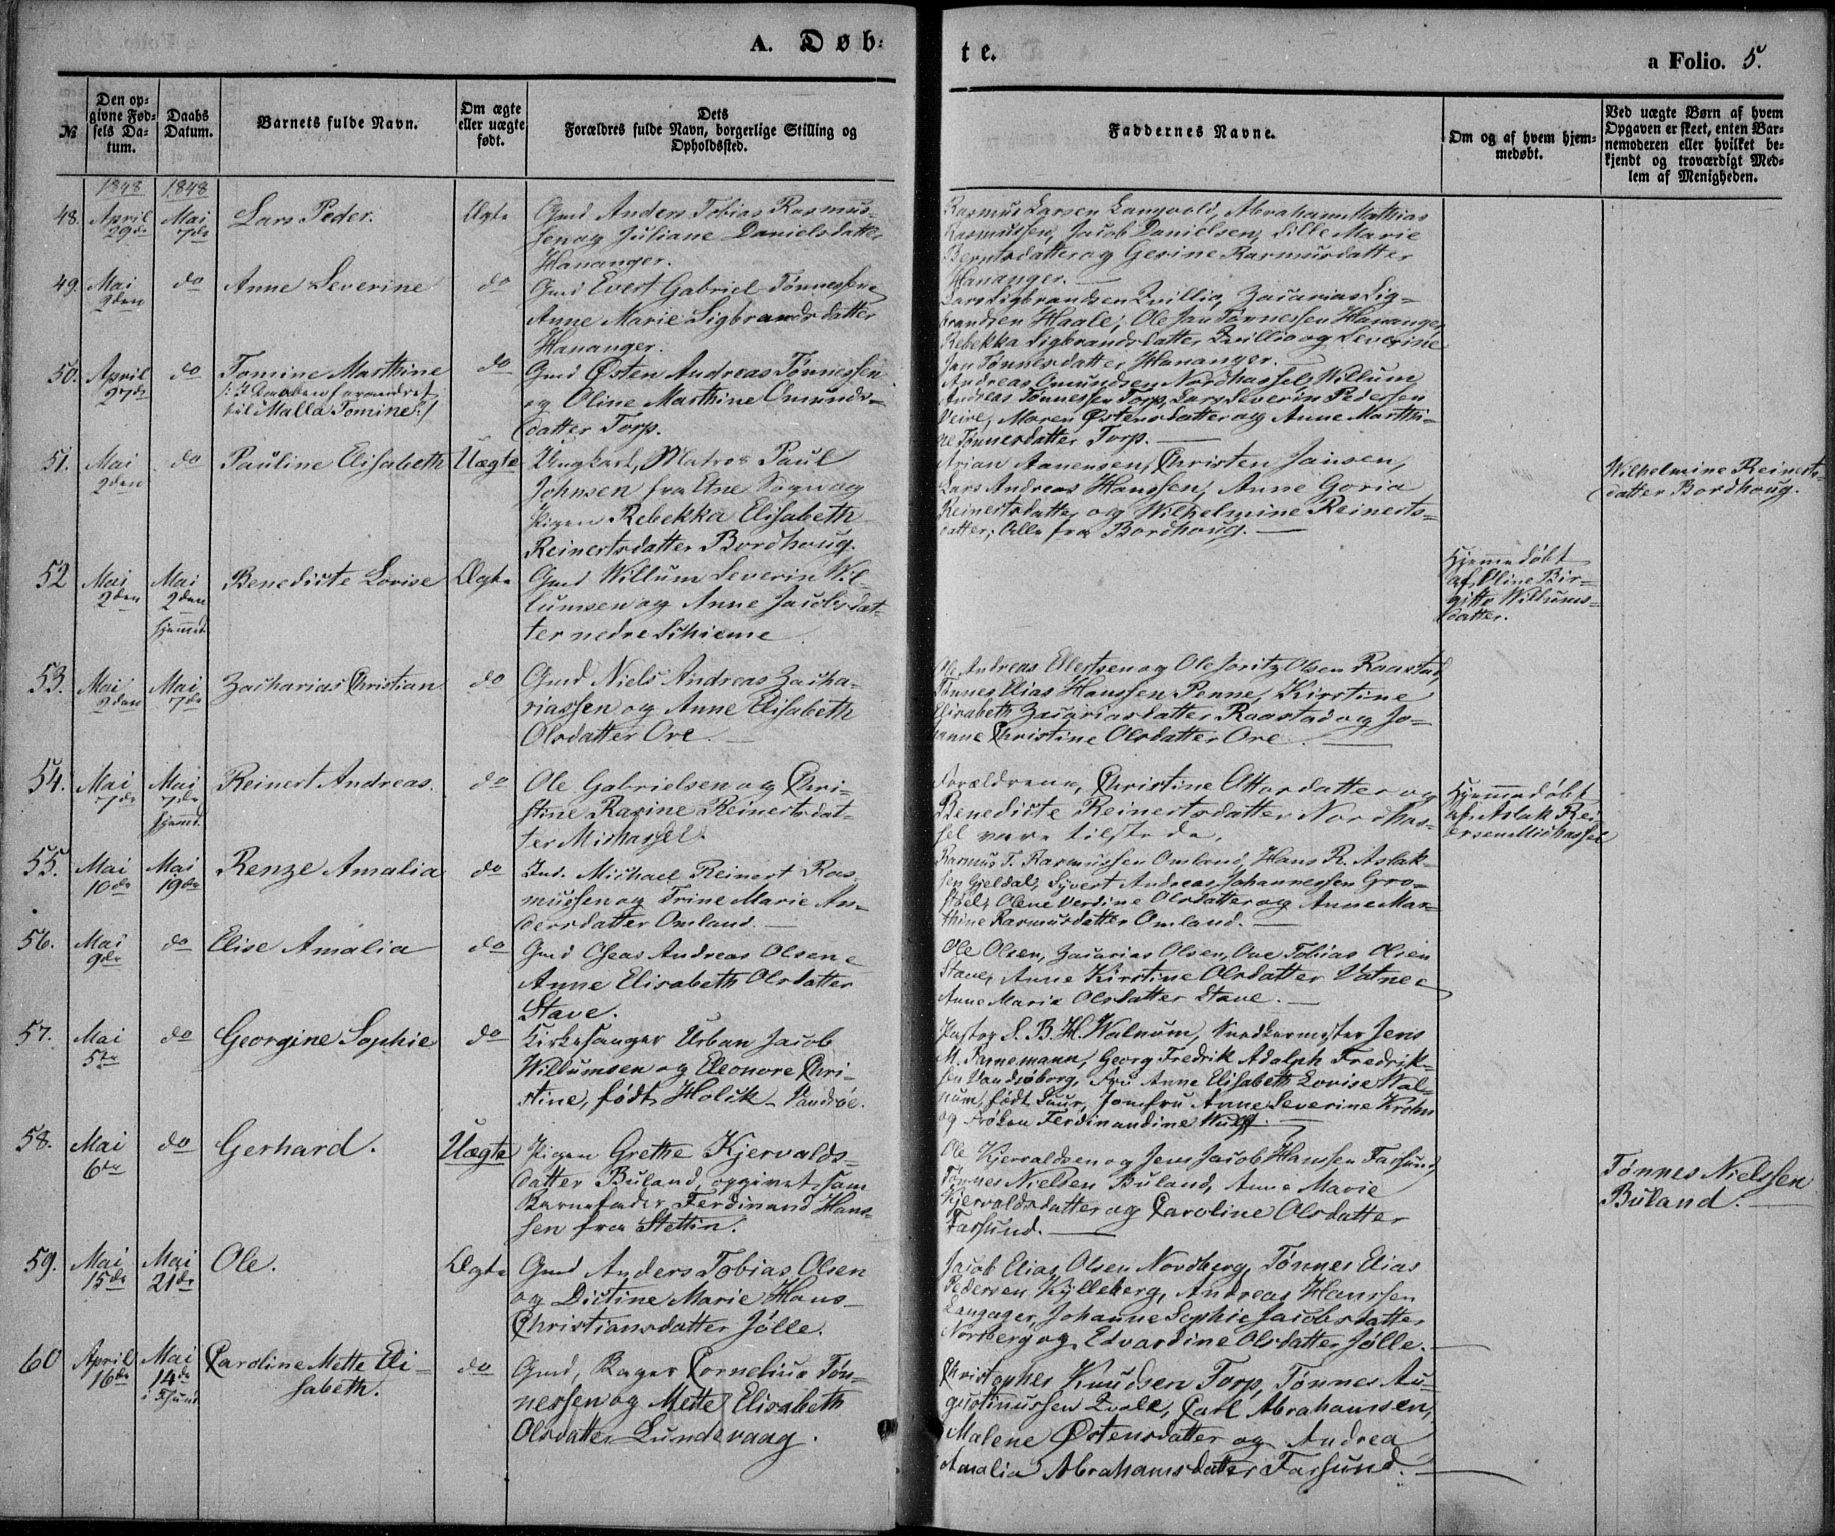 A. Døb-
te.
a Folio. 5.
№
Den op-
givne Fød-
sels Da-
tum.
Daabs
Datum.
Barnets fulde Navn.
Om ægte
eller uægte
født.
Dets
Forældres fulde Navn, borgerlige Stilling og
Opholdssted.
Faddernes Navne.
Om og af hvem hjem-
medøbt.
Ved uægte Børn af hvem
Opgaven er skeet, enten Bar-
nemoderen eller hvilket be-
kjendt og troværdigt Med-
lem af Menigheden.
1848 1848
48. April 29de Mai 7de Lars Peder. Ægte
Gmd Anders Tobias Rasmus-
sen og Juliane Danielsdatter
Hananger.
Rasmus Larsen Langvold, Abraham Mathias
Rasmussen, Jacob Danielsen, Sille Marie
Berntsdatter og Gesine Rasmusdatter
Hananger.
49. Mai 2den do Anne Severine do
Gmd Evert Gabriel Tønnessen e
Anne Marie Sigbrandsdatter
Hananger.
Lars Sigbrandsen Qvillia, Zacarias Sig-
brandsen Haale, Ole Jan Tønnessen Hananger,
Rebekka Sigbrandsdatter Qvillia og Severine
Jan Tønnesdatter Hananger.
50. April 27de do Tomine Marthine do
/: I Daaben forandret
til Malla Tomine :/
Gmd Østen Andreas Tønnessen
og Oline Marthine Omunds-
datter Torp.
Andreas Omundsen Nordhassel, Willum
Andreas Tønnessen Torp, Lars Severin Pedersen
Veire, Maren Østensdatter og Anne Marthi-
ne Tønnesdatter Torp.
51. Mai 2den do Pauline Elisabeth Uægte
Ungkarl, Matros Paul
Johnsen fra Ane Sogn og
Pigen Rebekka Elisabeth
Reinertsdatter Bordhoug.
Arian Aanensen, Christen Jansen,
Lars Andreas Hanssen, Anne Goria
Reinertsdatter og Wilhelmine Reinerts-
datter, Alle fra Bordhoug.
Wilhelmine Reinerts-
datter Bordhoug.
52 Mai 2den Mai 2den hjemmet Benedicte Lovise Ægte
Gmd Willum Severin Wil-
lumsen og Anne Jacobsdat-
ter nedre Schieme
Hjemmedøbt
af Oline Bir-
gitte Willums-
datter.
53. Mai 2den Mai 7de Zacharias Christian do
Gmd Niels Andreas Zacha-
riassen og Anne Elisabeth
Olsdatter Ore.
Ole Andreas Ellertsen og Ole Joritz Olsen Raastad,
Tønnes Elias Hanssen Penne, Kirstine
Elisabeth Zacariasdatter Raastad og Jo-
hanne Christine Olsdatter Ore.
54. Mai 7de Mai 7de hjemmet Reinert Andreas. do
Ole Gabrielsen og Chri-
stine Rasine Reinertsdat-
ter Midhassel
Forældrene, Christine Ottersdatter og
Benedicte Reinertsdatter Nordhas-
sel vare tilstede.
Hjemmedøbt
af Aslak Rei-
ersen Midhassel
55. Mai 10de Mai 19de Renze Amalia do
Ind. Michael Reinert Ras-
mussen og Trine Marie An-
dersdatter Omland.
Rasmus T. Rasmussen Omland, Hans R. Aslak-
sen Gjeldal, Syvert Andreas Johannessen Gro-
støel, Olene Verdine Olsdatter og Anne Mar-
thine Rasmusdatter Omland.
56. Mai 9de do Elise Amalia do
Gmd Cheas Andreas Olsen e
Anne Elisabeth Olsdatter
Stave.
Ole Olsen, Zacarias Olsen, Ove Tobias Olsen
Stave, Anne Kirstine Olsdatter Vatne e
Anne Marie Olsdatter Stave.
57. Mai 5te do Georgine Sophie do
Kirkesanger Urban Jacob
Willumsen og Eleonore Chri-
stine, født Holck - Vandsøe.
Pastor S. B. H. Walnum, Snedkermester Jens
M. Pannemann, Georg Fredrik Adolph Fredrik-
sen Vandsøborg, Fru Anne Elisabeth Lovise Wal-
num, født Saur, Jomfru Anne Severine Krohn
og Frøken Ferdinandine Wulff.
58. Mai 6te do Gerhard. Uægte
Pigen Grethe Kjervalds-
datter Buland, opgivet som
Barnefader Ferdinand Hans-
sen fra Stettin.
Ole Kjervaldsen og Jens Jacob Hanssen Farsund,
Tønnes Nielsen Buland, Anne Marie
Kjervaldsdatter og Caroline Olsdatter
Farsund.
Tønnes Nielssen
Buland.
59. Mai 15de Mai 21de Ole. Ægte
Gmd Anders Tobias Olsen
og Dictine Marie Hans-
Christiansdatter Jølle.
Jacob Elias Olsen Nordberg, Tønnes Elias
Pedersen Kylleberg, Andreas Hanssen
Langager, Johanne Sophie Jacobsdatter
Norberg og Edvardine Olsdatter Jølle.
60 April 16de Mai 14de i Fsund Caroline Mette Eli-
sabeth. do
Gmd, Bager Cornelius Tøn-
nessen og Mette Elisabeth
Olsdatter Lundevaag.
Christopher Knudsen Torp, Tønnes Au-
gustinussen Qvale, Carl Abrahamsen,
Malene Østensdatter og Andrea
Amalia Abrahamsdatter Farsund.